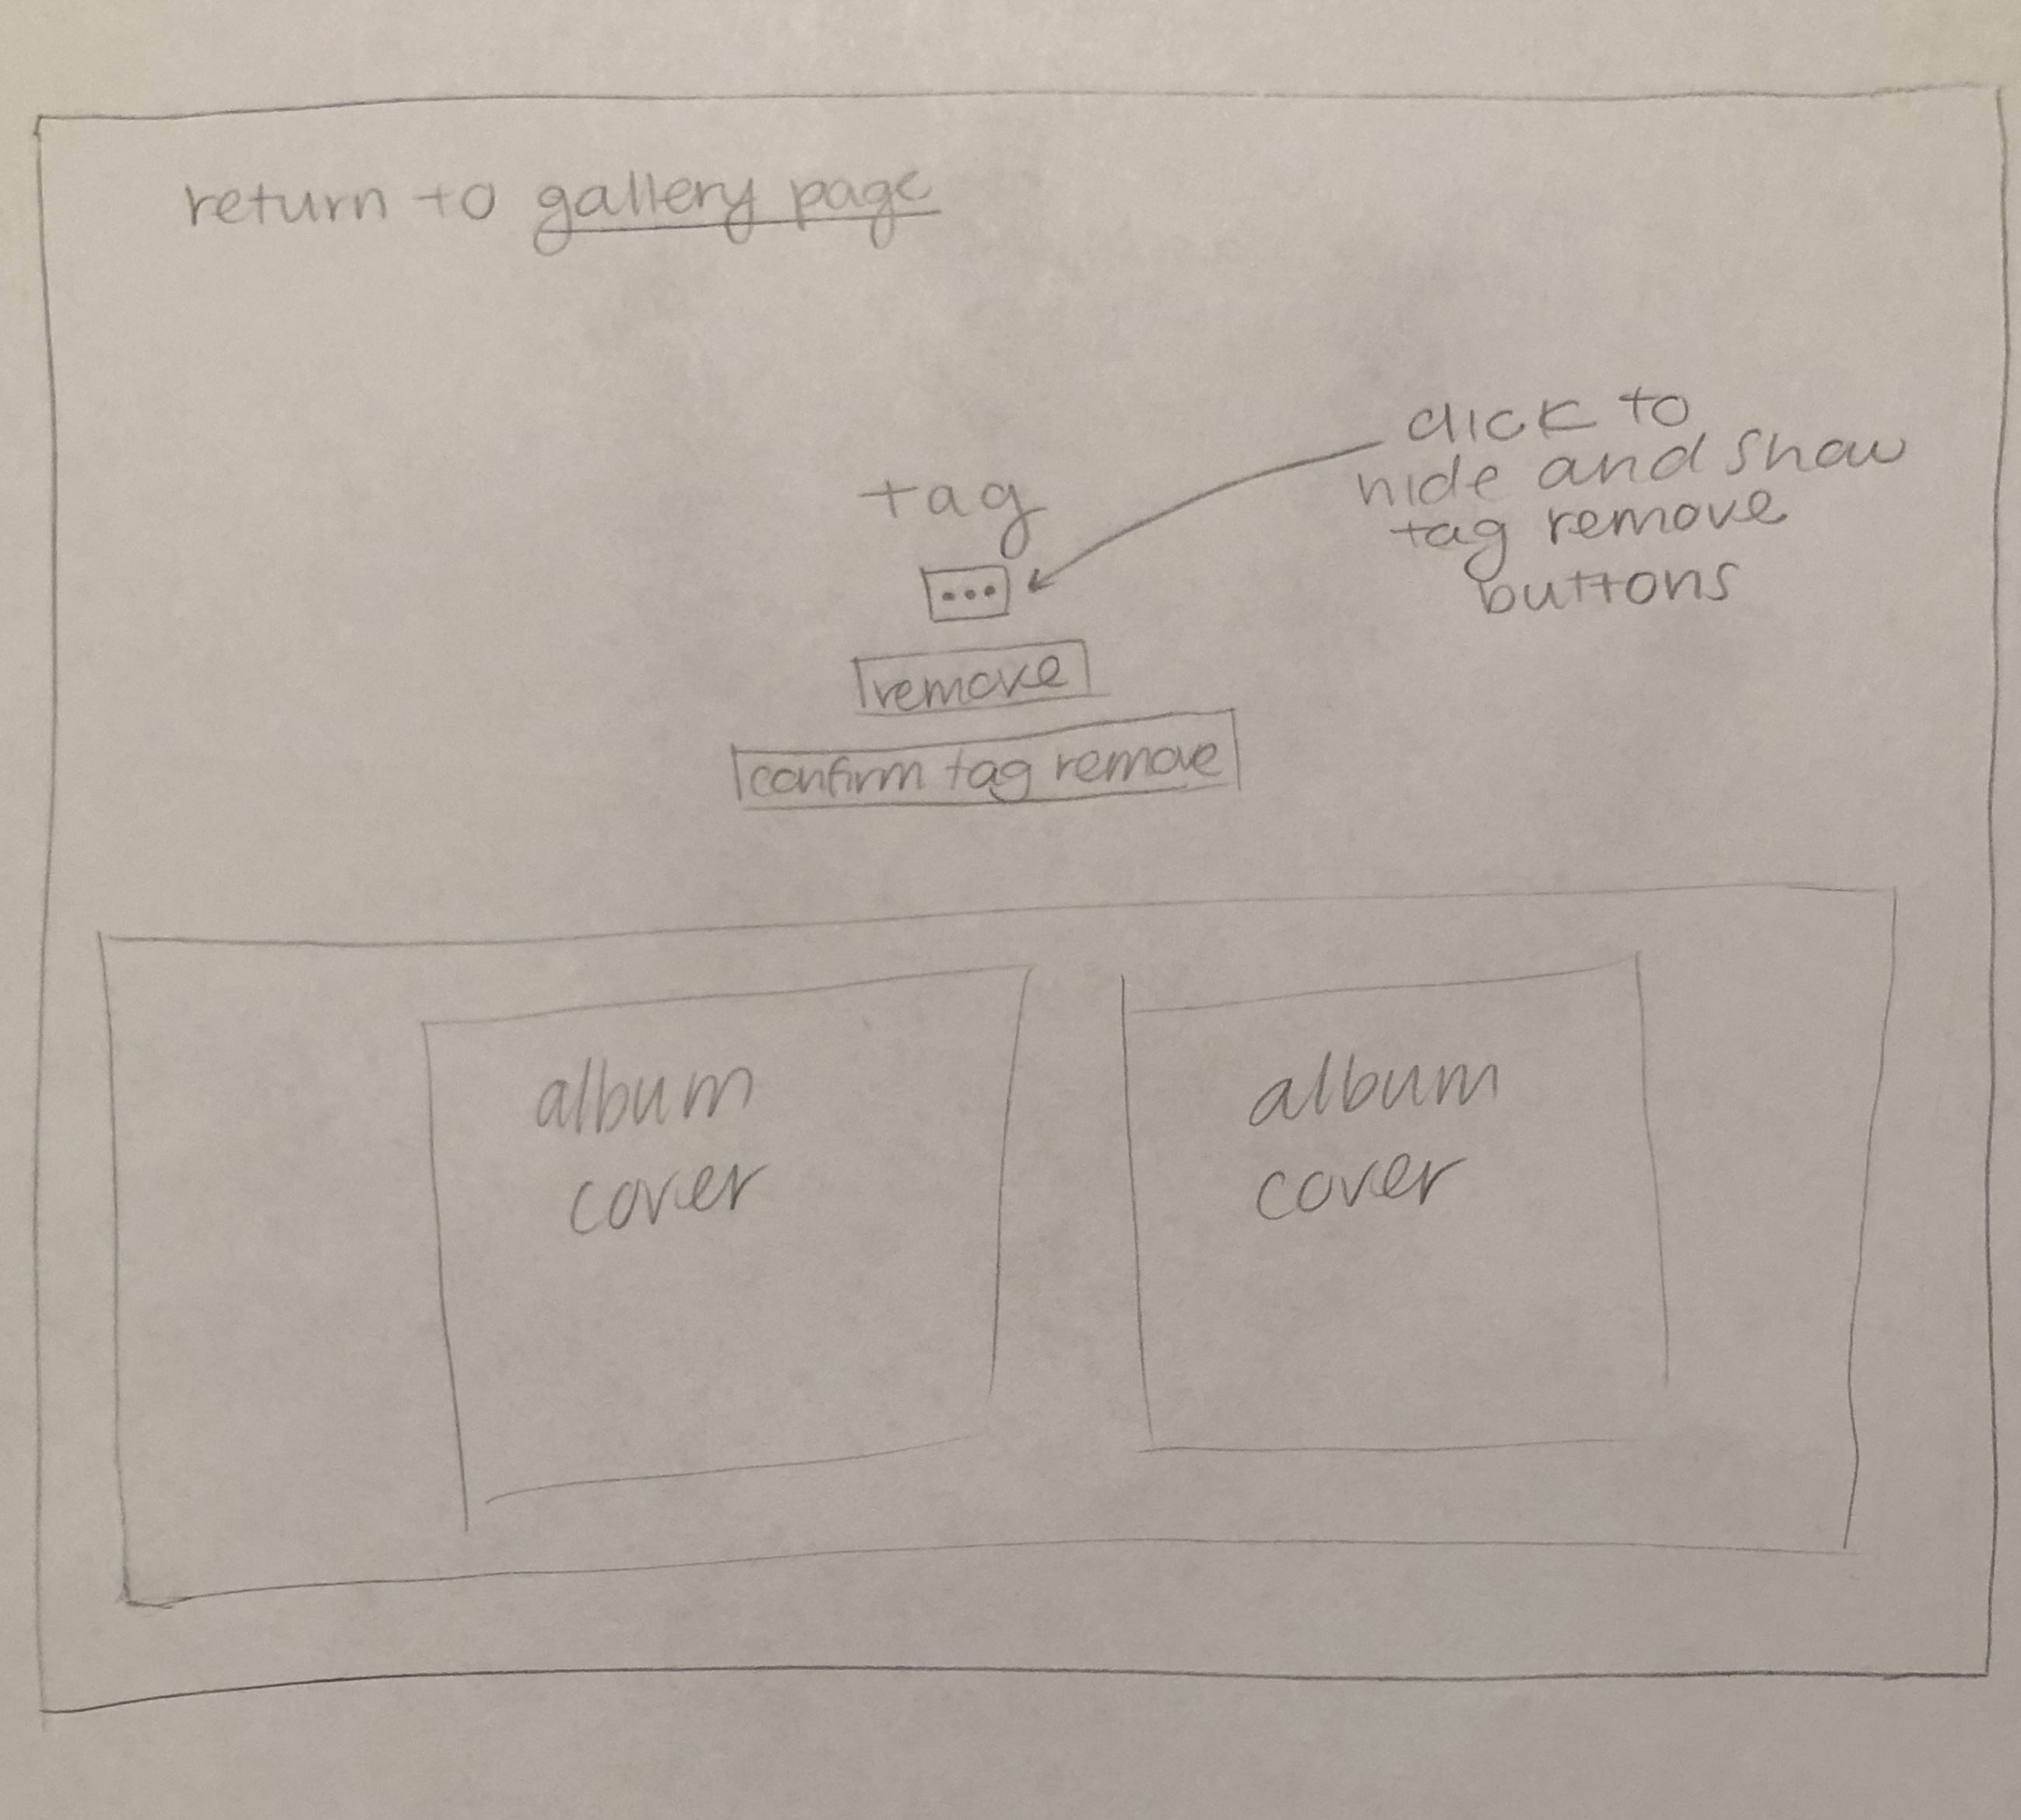 return to gallery page
click to
hide and show
tag remove
buttons
tag
...
remove
confirm tag remove
album
cover
album
cover